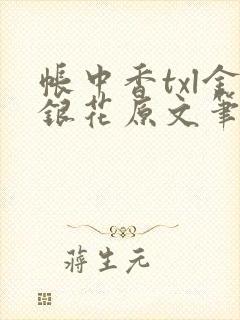 帐中香txl金
银花原文笔
蒋生元